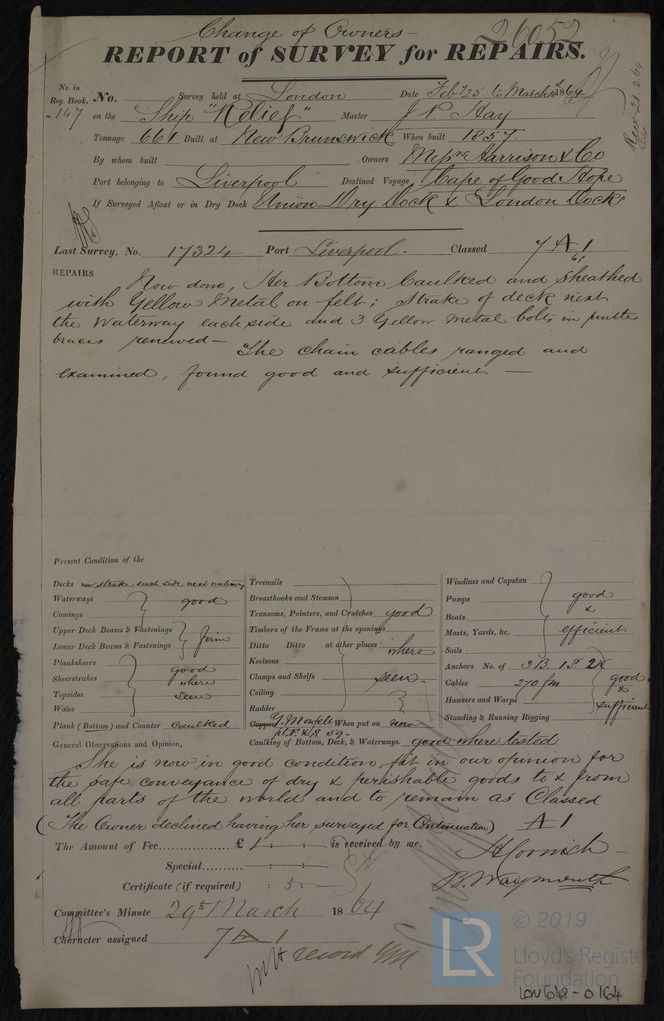 Change of Owners
26052
REPORT of SURVEY for REPAIRS.
No. in
Reg. Book.
147
No. Survey held at London Date Feb 25 to March 1864
on the Ship "Relief" Master J P Hay
Tonnage 661 Built at New Brunswick When built 1857
By whom built Owners Messrs Harrison & Co
Port belonging to Liverpool Destined Voyage Cape of Good Hope
If Surveyed Afloat or in Dry Dock Union Dry Dock & London Docks
Last Survey, No. 17324 Port Liverpool. Classed 7 A 1
61
REPAIRS Now done, Her Bottom Caulked and Sheathed
with Yellow Metal on felt; Strake of deck next
the Waterway each side and 3 Yellow metal bolts in
braces renewed—
The chain cables ranged and
examined, found good and sufficient—
Present Condition of the
Decks new strake each side next waterway
Waterways good
Comings
Upper Deck Beams & Fastenings firm
Lower Deck Beams & Fastenings
Planksheers good
Sheerstrakes where
Topsides seen
Wales
Plank (Bottom) and Counter Caulked
Treenails
Breasthooks and Stemson
Transoms, Pointers, and Crutches good
Timbers of the Frame at the openings
Ditto Ditto at other places where
Keelsons
Clamps and Shelfs seen
Ceiling
Rudder
Copper Y. Metal When put on now
Caulking of Bottom, Deck, & Waterways. good where tested
Windlass and Capstan
Pumps good
Boats &
Masts, Yards, &c. efficient
Sails
Anchors No. of 3B. 1S. 2K
Cables 270 fm good &
Hawsers and Warps sufficient
Standing & Running Rigging
General Observations and Opinion,
She is now in good condition fit in our opinion for
the safe conveyance of dry & perishable goods to & from
all parts of the world and to remain as Classed
(The Owner declined having her surveyed for Continuation) A 1
The Amount of Fee £ 1 : : is received by me,
Special : :
Certificate (if required) : 5 :
B. Waymouth
Committee's Minute 29th March 1864
Character assigned 7 A 1
record
© 2019
LR
Lloyd's Register
Foundation
LON648-0164